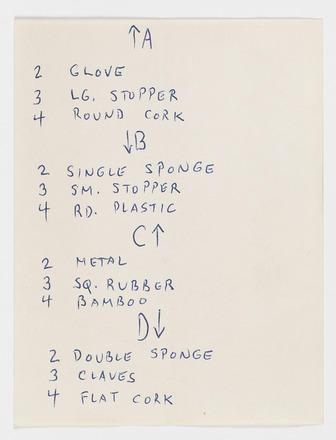 ↑A
2 GLOVE
3 LG. STOPPER
4 ROUND CORK
↓B
2 SINGLE SPONGE
3 SM. STOPPER
4 RD. PLASTIC
C↑
2 METAL
3 SQ. RUBBER
4 BAMBOO
D↓
2 DOUBLE SPONGE
3 CLAVES
4 FLAT CORK